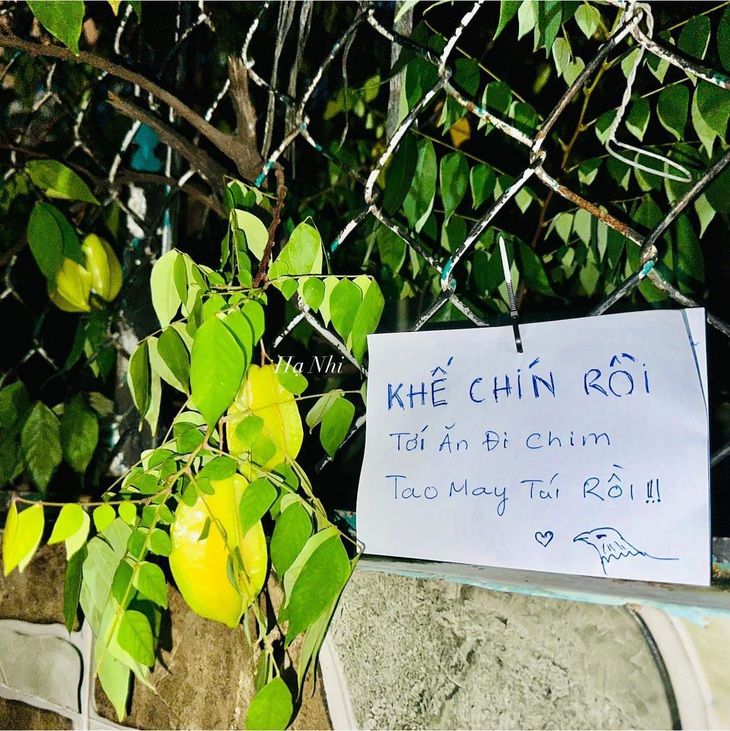 Hạ Nhi
KHẾ CHÍN RỒI
Tới Ăn Đi Chim
Tao May Túi RỒI!!!